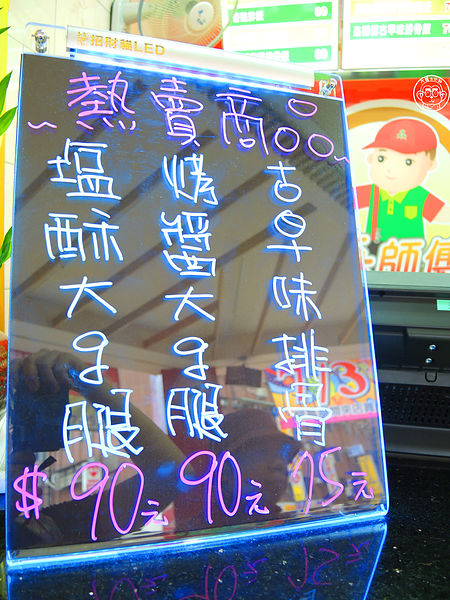 招財貓LED
~熱賣商品~
古早味排骨
烤醬大g腿
塩酥大g腿
$90元 90元 75元
師傅